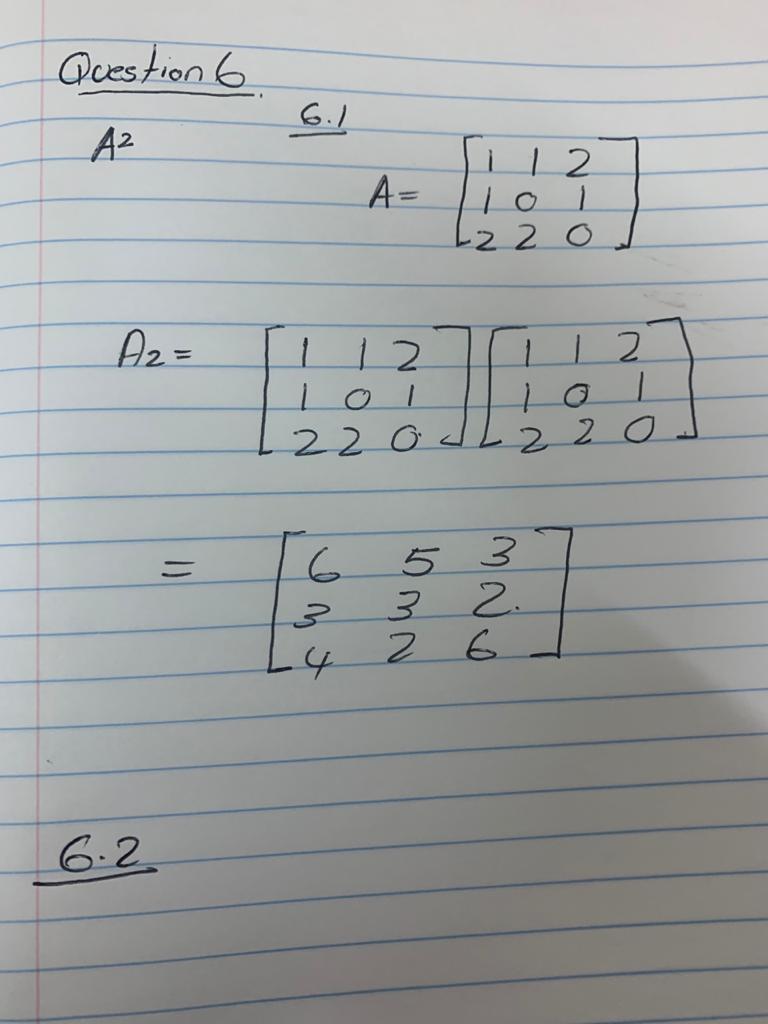 Question 6.
6.1
A²
A = [1 1 2
1 0 1
2 2 0]
A2 = [1 1 2 [1 1 2
1 0 1 1 0 1
2 2 0] 2 2 0]
= [6 5 3
3 3 2.
4 2 6]
6.2